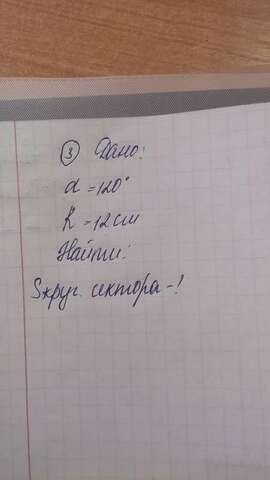 ③ Дано:
α = 120°
R = 12 см
Найти:
Sкруг. сектора - ?